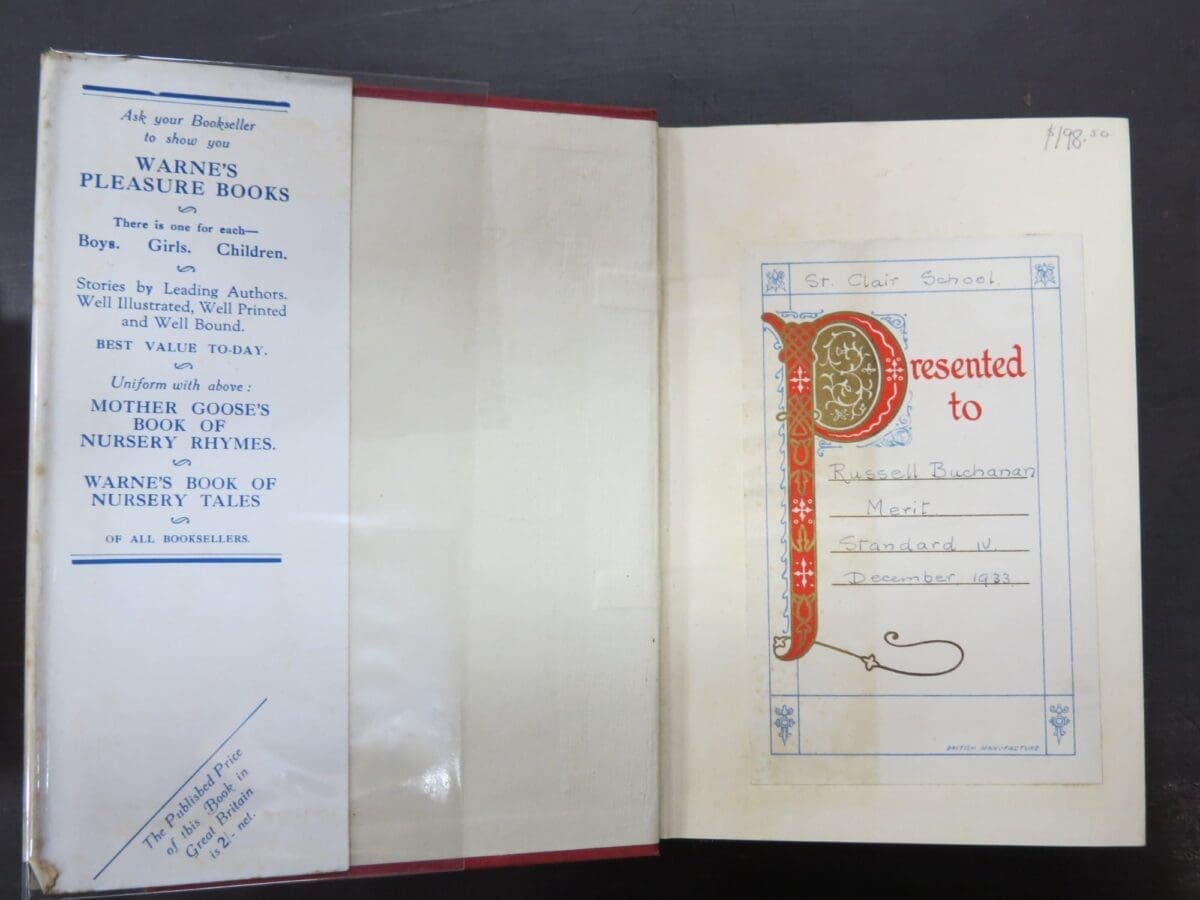 Ask your Bookseller
to show you
WARNE'S
PLEASURE BOOKS
There is one for each—
Boys. Girls. Children.
Stories by Leading Authors.
Well Illustrated, Well Printed
and Well Bound.
BEST VALUE TO-DAY.
Uniform with above:
MOTHER GOOSE'S
BOOK OF
NURSERY RHYMES.
WARNE'S BOOK OF
NURSERY TALES
OF ALL BOOKSELLERS.
The Published Price
of this Book in
Great Britain
is 2/- net.
$198.50
St. Clair School.
Presented
to
Russell Buchanan
Merit.
Standard IV.
December 1933.
BRITISH MANUFACTURE